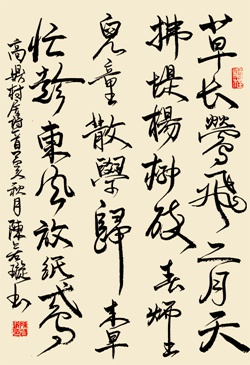 草长鶯飞二月天
拂堤楊柳醉春烟
兒童散學歸来早
忙趁東风放紙鳶
高鼎村居詩一首 亥秋月 陳 书